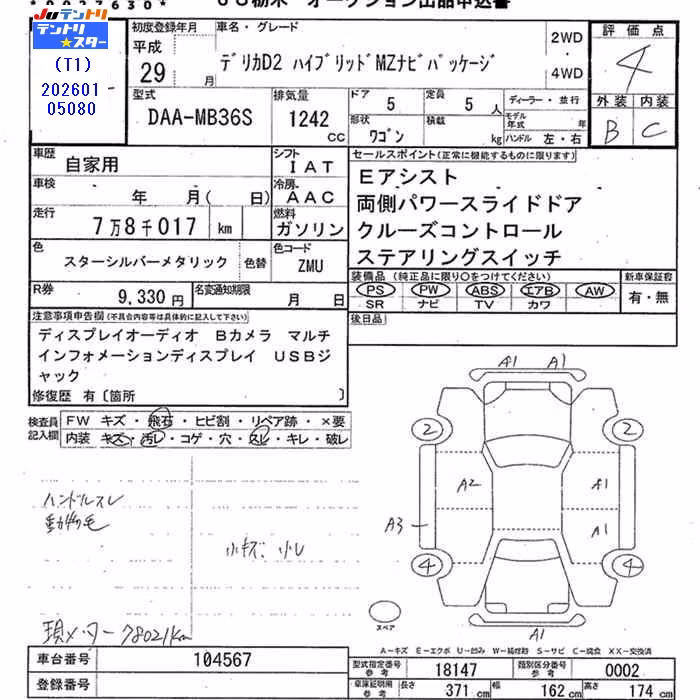 JU栃木 オークション出品申込書
JUテントリ
テントリスター
(T1)
202601
05080
初度登録年月
平成
29 月
車名・グレード
デリカD2 ハイブリッドMZナビパッケージ
2WD
・
4WD
評価点
4
外装 内装
B C
型式
DAA-MB36S
排気量
1242 CC
ドア 5
定員 5 人
形状 ワゴン
積載 kg
ディーラー・並行
モデル年式 年
ハンドル 左・右
車歴 自家用
シフト IAT
車検 年 月 ( 日)
冷房 AAC
走行 7万8千017 km
燃料 ガソリン
色 スターシルバーメタリック 色替
色コード ZMU
R券 9,330 円
名変通知期限 月 日
セールスポイント(正常に機能するものに限ります)
Eアシスト
両側パワースライドドア
クルーズコントロール
ステアリングスイッチ
装備品 (純正品に限り○をつけてください)
PS PW ABS エアB AW
SR ナビ TV カワ
新車保証書
有・無
後日品
注意事項申告欄(不具合内容等は具体的に記入して下さい)
ディスプレイオーディオ Bカメラ マルチ
インフォメーションディスプレイ USBジ
ャック
修復歴 有〔箇所 〕
検査員記入欄
FW キズ・飛石・ヒビ割・リペア跡・×要
内装 キズ・汚レ・コゲ・穴・スレ・キレ・破レ
ハンドルスレ
動物毛
小キズ、小レ
現メーター78021km
A1 A1
2 2
A2 A1
A3 A1
4 4
A1
スペア
A-キズ E-エクボ U-凹み W-補修跡 S-サビ C-腐食 XX-交換済
車台番号 104567
登録番号
型式指定番号参考 18147
類別区分番号参考 0002
車庫証明用参考 長さ 371 cm 幅 162 cm 高さ 174 cm